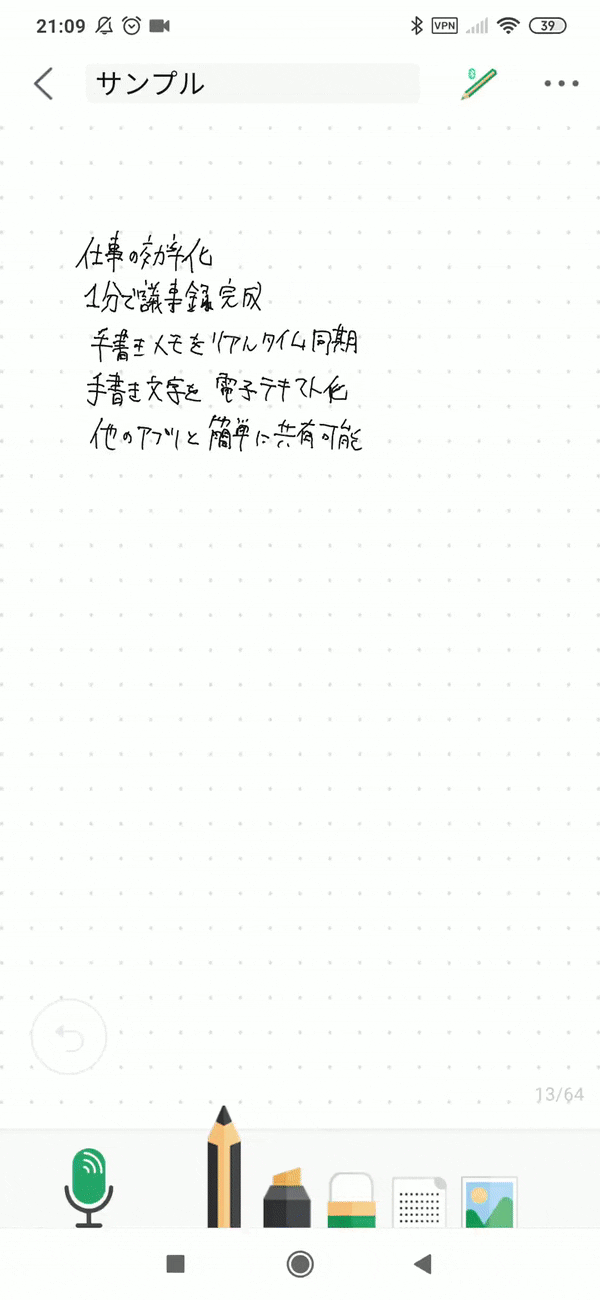 21:09 VPN 39
サンプル
仕事の効率化
1分で議事録完成
手書きメモをリアルタイム同期
手書き文字を電子テキスト化
他のアプリと簡単に共有可能
13/64